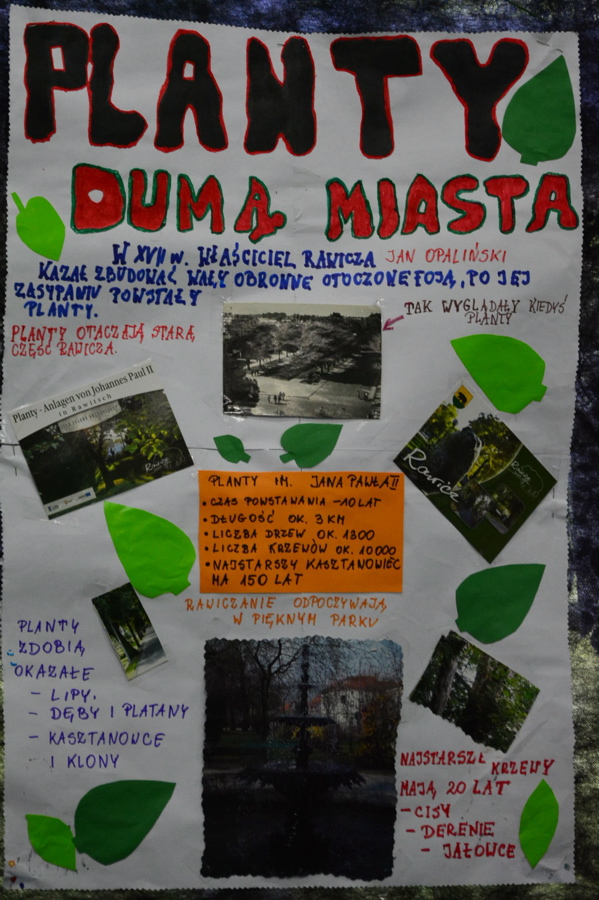 PLANTY
DUMĄ MIASTA
W XVII W. WŁAŚCICIEL RAWICZA JAN OPALIŃSKI
KAZAŁ ZBUDOWAĆ WAŁY OBRONNE OTOCZONE FOSĄ, PO JEJ
ZASYPANIU POWSTAŁY
PLANTY.
TAK WYGLĄDAŁY KIEDYŚ
PLANTY
PLANTY OTACZAJĄ STARĄ
CZĘŚĆ RAWICZA.
Planty - Anlagen von Johannes Paul II
in Rawitsch
Rawicz
PLANTY IM. JANA PAWŁA II
• CZAS POWSTAWANIA - 10 LAT
• DŁUGOŚĆ OK. 3 KM
• LICZBA DRZEW OK. 1300
• LICZBA KRZEWÓW OK. 10000
• NAJSTARSZY KASZTANOWIEC
MA 150 LAT
RAWICZANIE ODPOCZYWAJĄ
W PIĘKNYM PARKU
PLANTY
ZDOBIĄ
OKAZAŁE
- LIPY,
- DĘBY I PLATANY
- KASZTANOWCE
I KLONY
NAJSTARSZE KRZEWY
MAJĄ 20 LAT
- CISY
- DERENIE
- JAŁOWCE